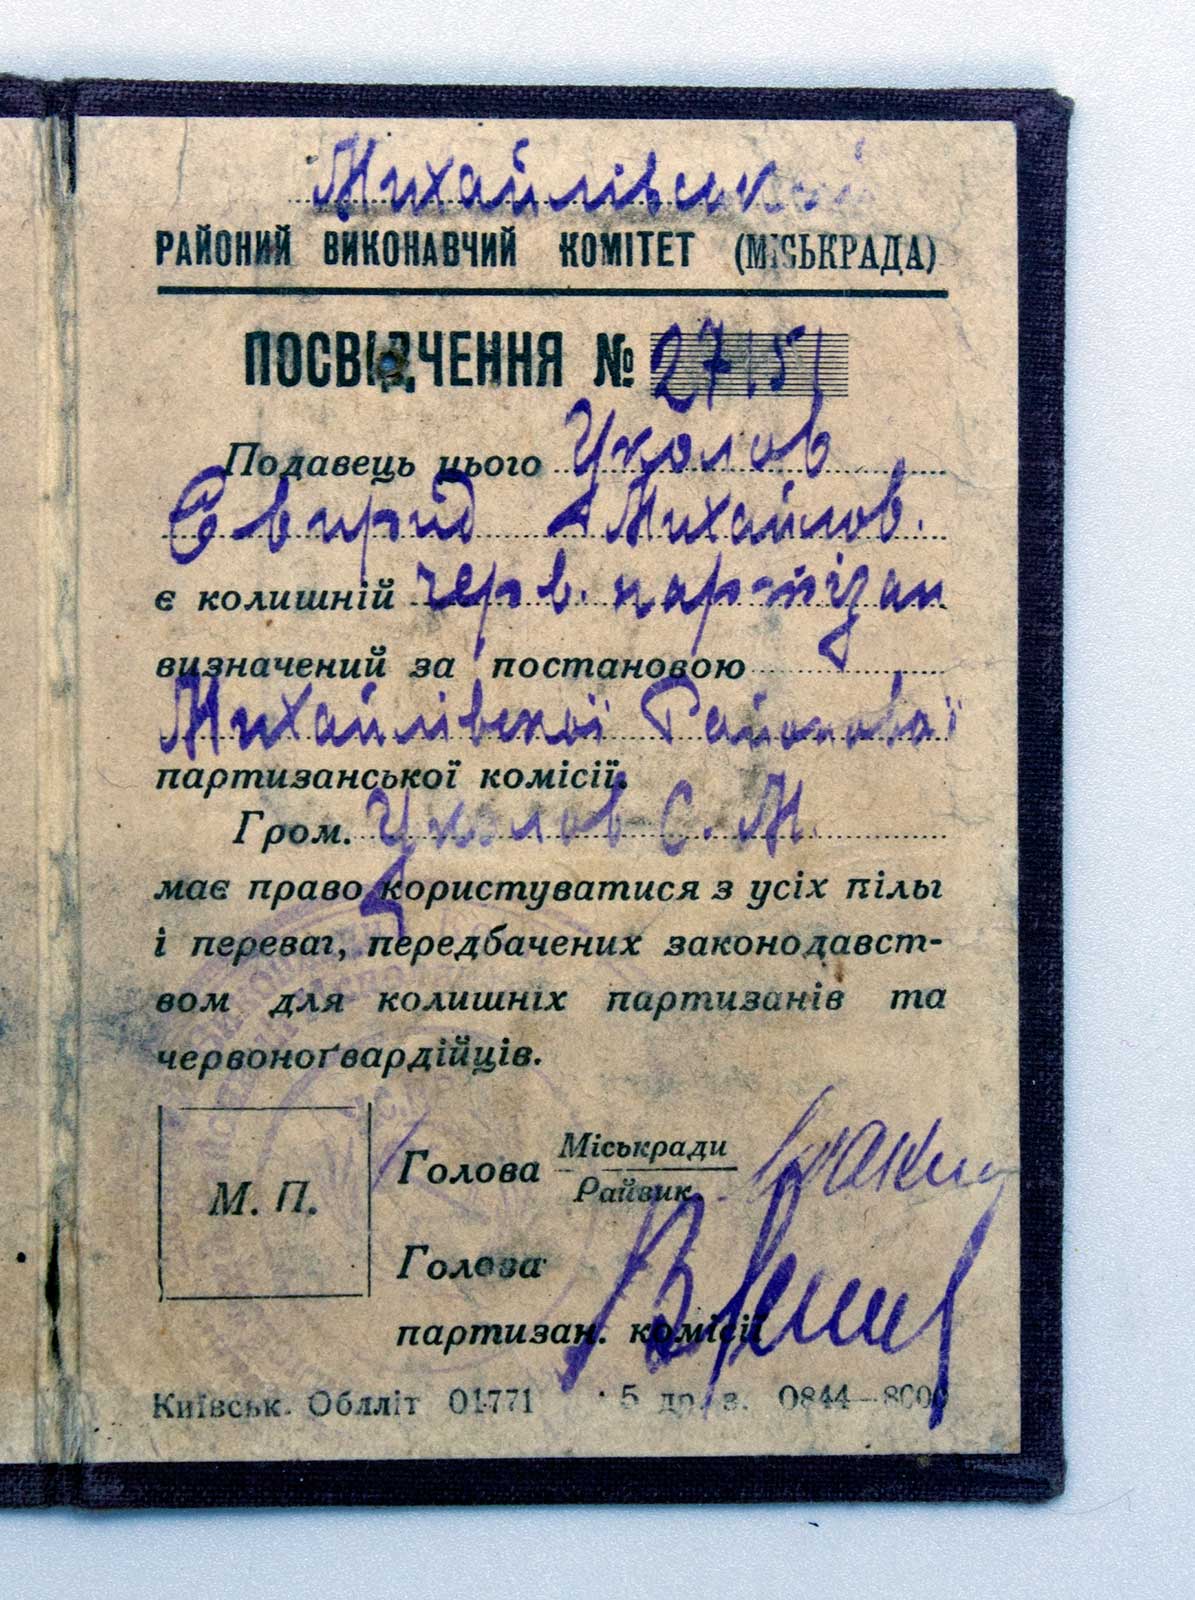 Михайлівський
РАЙОНИЙ ВИКОНАВЧИЙ КОМІТЕТ (МІСЬКРАДА)
ПОСВІДЧЕННЯ № 27151
Подавець цього Уколов
Свирид Михайлов.
є колишній черв. партізан
визначений за постановою
Михайлівської Районової
партизанської комісії.
Гром. Уколов С. М.
має право користуватися з усіх пільг
і переваг, передбачених законодавст-
вом для колишніх партизанів та
червоноґвардійців.
М. П.
Голова Міськради
Райвик.
Голова
партизан. комісії
Київськ. Облліт 01771 5 др. з. 0844—800